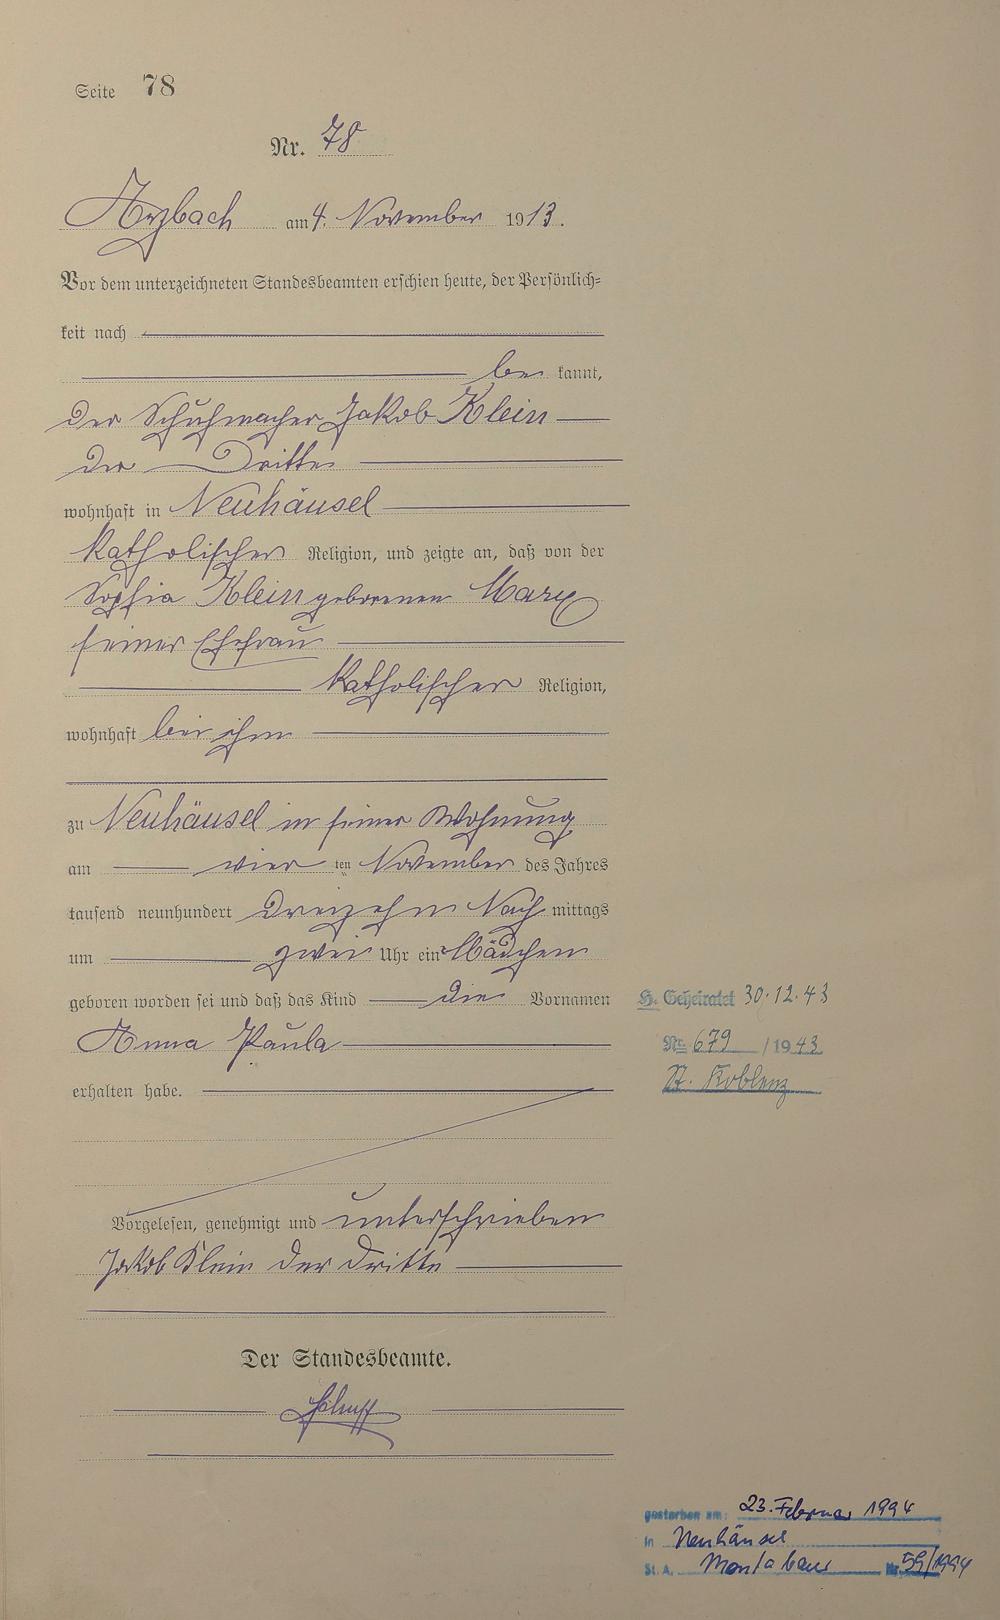 Seite 78
Nr. 78
Arzbach am 4. November 1913.
Vor dem unterzeichneten Standesbeamten erschien heute, der Persönlich-
keit nach
be kannt,
der Schuhmacher Jakob Klein
der Dritte
wohnhaft in Neuhäusel
katholischer Religion, und zeigte an, daß von der
Sophia Klein geborenen Marx
seiner Ehefrau
katholischer Religion,
wohnhaft bei ihm
zu Neuhäusel in seiner Wohnung
am vier ten November des Jahres
tausend neunhundert dreizehn Nach mittags
um zwei Uhr ein Mädchen
geboren worden sei und daß das Kind die Vornamen
Anna Paula
erhalten habe.
H. Geheiratet 30.12.43
Nr. 679 / 1943
St. Koblenz
Vorgelesen, genehmigt und unterschrieben
Jakob Klein der Dritte
Der Standesbeamte.
gestorben am: 23. Februar 1994
in Neuhäusel
St. A. Montabaur Nr. 59/1994